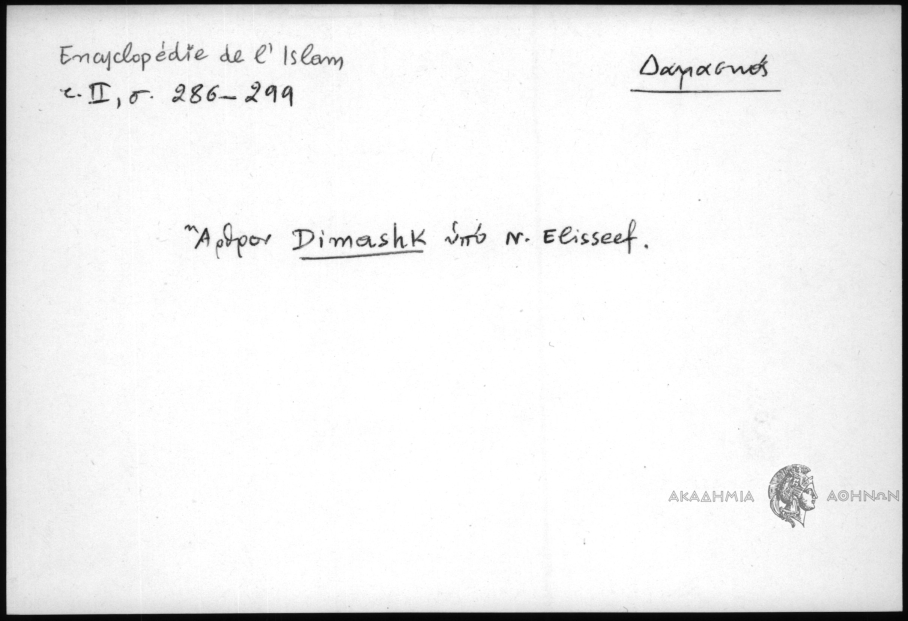 Encyclopédie de l' Islam
Δαμασκός
τ. II, σ. 286-299
Ἄρθρον Dimashk ὑπό N. Elisseef.
ΑΚΑΔΗΜΙΑ ΑΘΗΝΩΝ